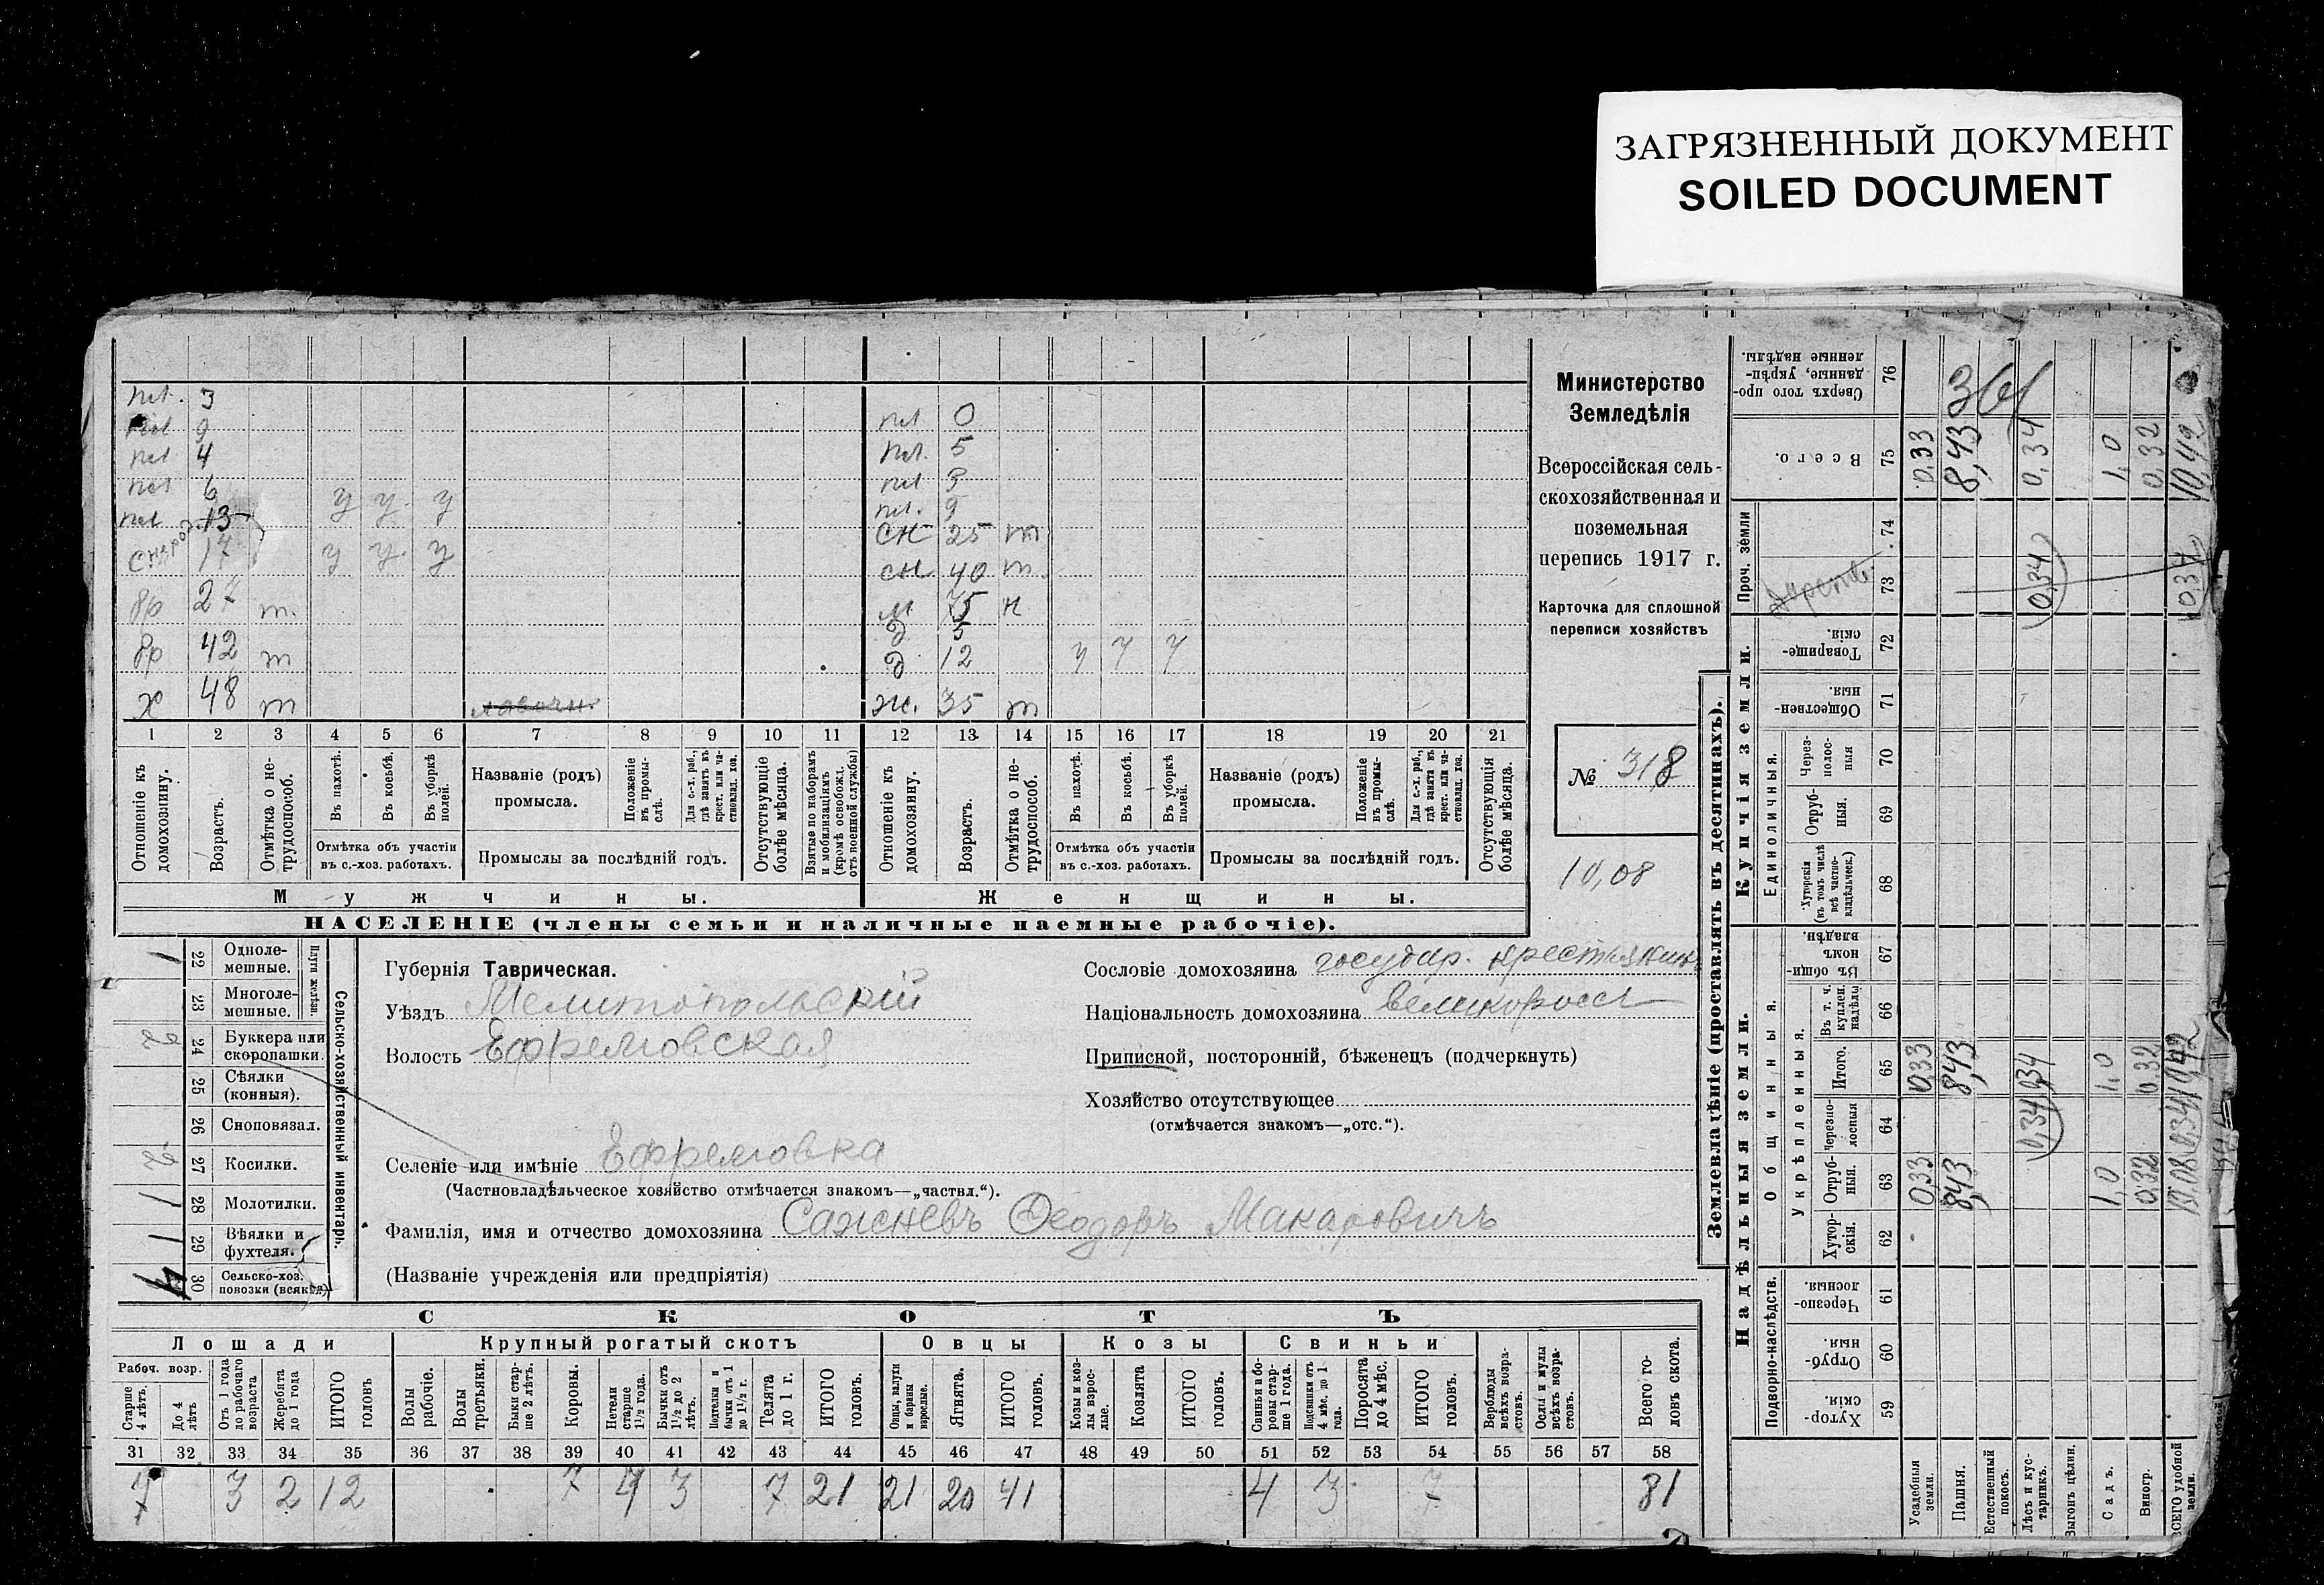 ЗАГРЯЗНЕННЫЙ ДОКУМЕНТ
SOILED DOCUMENT
пл. 3
9
пл 4
пл 6 у у у
пл 13
17 у у у
бр 27 т.
бр 42 т
х 48 т
пл 0
пл. 5
пл 3
пл. 9
сн 25 т
сн 40 т
м 75 н
д 5
д 12 у у у
ж. 35 т
1 2 3 4 5 6 7 8 9 10 11 12 13 14 15 16 17 18 19 20 21
Отношеніе къ домохозяину.
Возрастъ.
Отмѣтка о не-трудоспособ.
Въ пахотѣ.
Въ косьбѣ.
Въ уборкѣ полей.
Отмѣтка объ участіи въ с.-хоз. работахъ.
Названіе (родъ) промысла.
Положеніе въ промы-слѣ.
Для с.-х. раб., гдѣ занятъ въ крест. или ча-стновлад. хоз.
Промыслы за послѣдній годъ.
Отсутствующіе болѣе мѣсяца.
Взятые по наборамъ и мобилизаціямъ (кромѣ освобожд. отъ военной службы)
Отношеніе къ домохозяину.
Возрастъ.
Отмѣтка о не-трудоспособ.
Въ пахотѣ.
Въ косьбѣ.
Въ уборкѣ полей.
Отмѣтка объ участіи въ с.-хоз. работахъ.
Названіе (родъ) промысла.
Положеніе въ промы-слѣ.
Для с.-х. раб., гдѣ занята въ крест. или ча-стновлад. хоз.
Промыслы за послѣдній годъ.
Отсутствующія болѣе мѣсяца.
Мужчины. Женщины.
НАСЕЛЕНІЕ (члены семьи и наличные наемные рабочіе).
Министерство
Земледѣлія
Всероссійская сель-
скохозяйственная и
поземельная
перепись 1917 г.
Карточка для сплошной
переписи хозяйствъ
№ 318
10,08
Сельско-хозяйственный инвентарь.
Плуги желѣзн.
1 22 Одноле-мешные.
23 Многоле-мешные.
2 24 Буккера или скоропашки.
25 Сѣялки (конныя).
26 Сноповязал.
2 27 Косилки.
1 28 Молотилки.
1 29 Вѣялки и фухтеля.
4 30 Сельско-хоз. повозки (всякія)
Губернія Таврическая.
Уѣздъ Мелитопольскій
Волость Ефремовская
Сословіе домохозяина государ. крестьянин
Національность домохозяина великороссъ
Приписной, посторонній, бѣженецъ (подчеркнуть)
Хозяйство отсутствующее
(отмѣчается знакомъ—„отс.“).
Селеніе или имѣніе Ефремовка
(Частновладѣльческое хозяйство отмѣчается знакомъ—„частвл.“).
Фамилія, имя и отчество домохозяина Сажневъ Феодоръ Макаровичъ
(Названіе учрежденія или предпріятія)
СКОТЪ
Лошади Крупный рогатый скотъ Овцы Козы Свиньи
Рабоч. возр.
Старше 4 лѣтъ.
До 4 лѣтъ
Отъ 1 года до рабочаго возраста
Жеребята до 1 года
ИТОГО головъ
Волы рабочіе.
Волы третьяки.
Быки стар-ше 2 лѣтъ.
Коровы.
Нетели старше 1½ года.
Бычки отъ 1½ до 2 лѣтъ.
Нотелки и бычки отъ 1 до 1½ г.
Телята до 1 г.
ИТОГО головъ.
Овцы, валухи и бараны взрослые.
Ягнята.
ИТОГО головъ.
Козы и коз-лы взрос-лые.
Козлята
ИТОГО головъ.
Свиньи и бо-ровы стар-ше 1 года.
Подсвинки отъ 4 мѣс. до 1 года.
Поросята до 4 мѣс.
ИТОГО головъ.
Верблюды всѣхъ возра-стовъ.
Ослы и мулы всѣхъ возра-стовъ.
Всего го-ловъ скота.
31 32 33 34 35 36 37 38 39 40 41 42 43 44 45 46 47 48 49 50 51 52 53 54 55 56 57 58
7 3 2 12 7 4 3 7 21 21 20 41 4 3 7 81
Землевладѣніе (проставлять въ десятинахъ).
Надѣльныя земли. Купчія земли.
Подворно-наслѣдств.
Общинныя.
Укрѣпленныя.
Единоличныя.
Проч. земли
59 Хутор-скія.
60 Отруб-ныя.
61 Черезпо-лосныя.
62 Хутор-скія.
63 Отруб-ныя.
64 Черезпо-лосныя
65 Итого.
66 Въ т. ч. куплен. надѣлы
67 Въ общи-номъ владѣн.
68 Хуторскія (въ томъ числѣ всѣ частно-владѣльческ.)
69 Отруб-ныя.
70 Через-полос-ныя
71 Обществен-ныя
72 Товарище-скія.
73
74
75 Всего.
76 Сверхъ того про-данные, укрѣп-ленные надѣлы.
Усадебныя земли. 0,33 0,33 0,33
Пашня. 8,43 8,43 8,43
Естественный покосъ.
Лѣсъ и кус-тарникъ. 0,34 0,34 0,34 0,34
Выгонъ цѣлин.
Садъ. 1,0 1,0 1,0
Виногр. 0,32 0,32 0,32
ВСЕГО удобной земли. 10,08 0,34 10,42 0,34 10,42
361